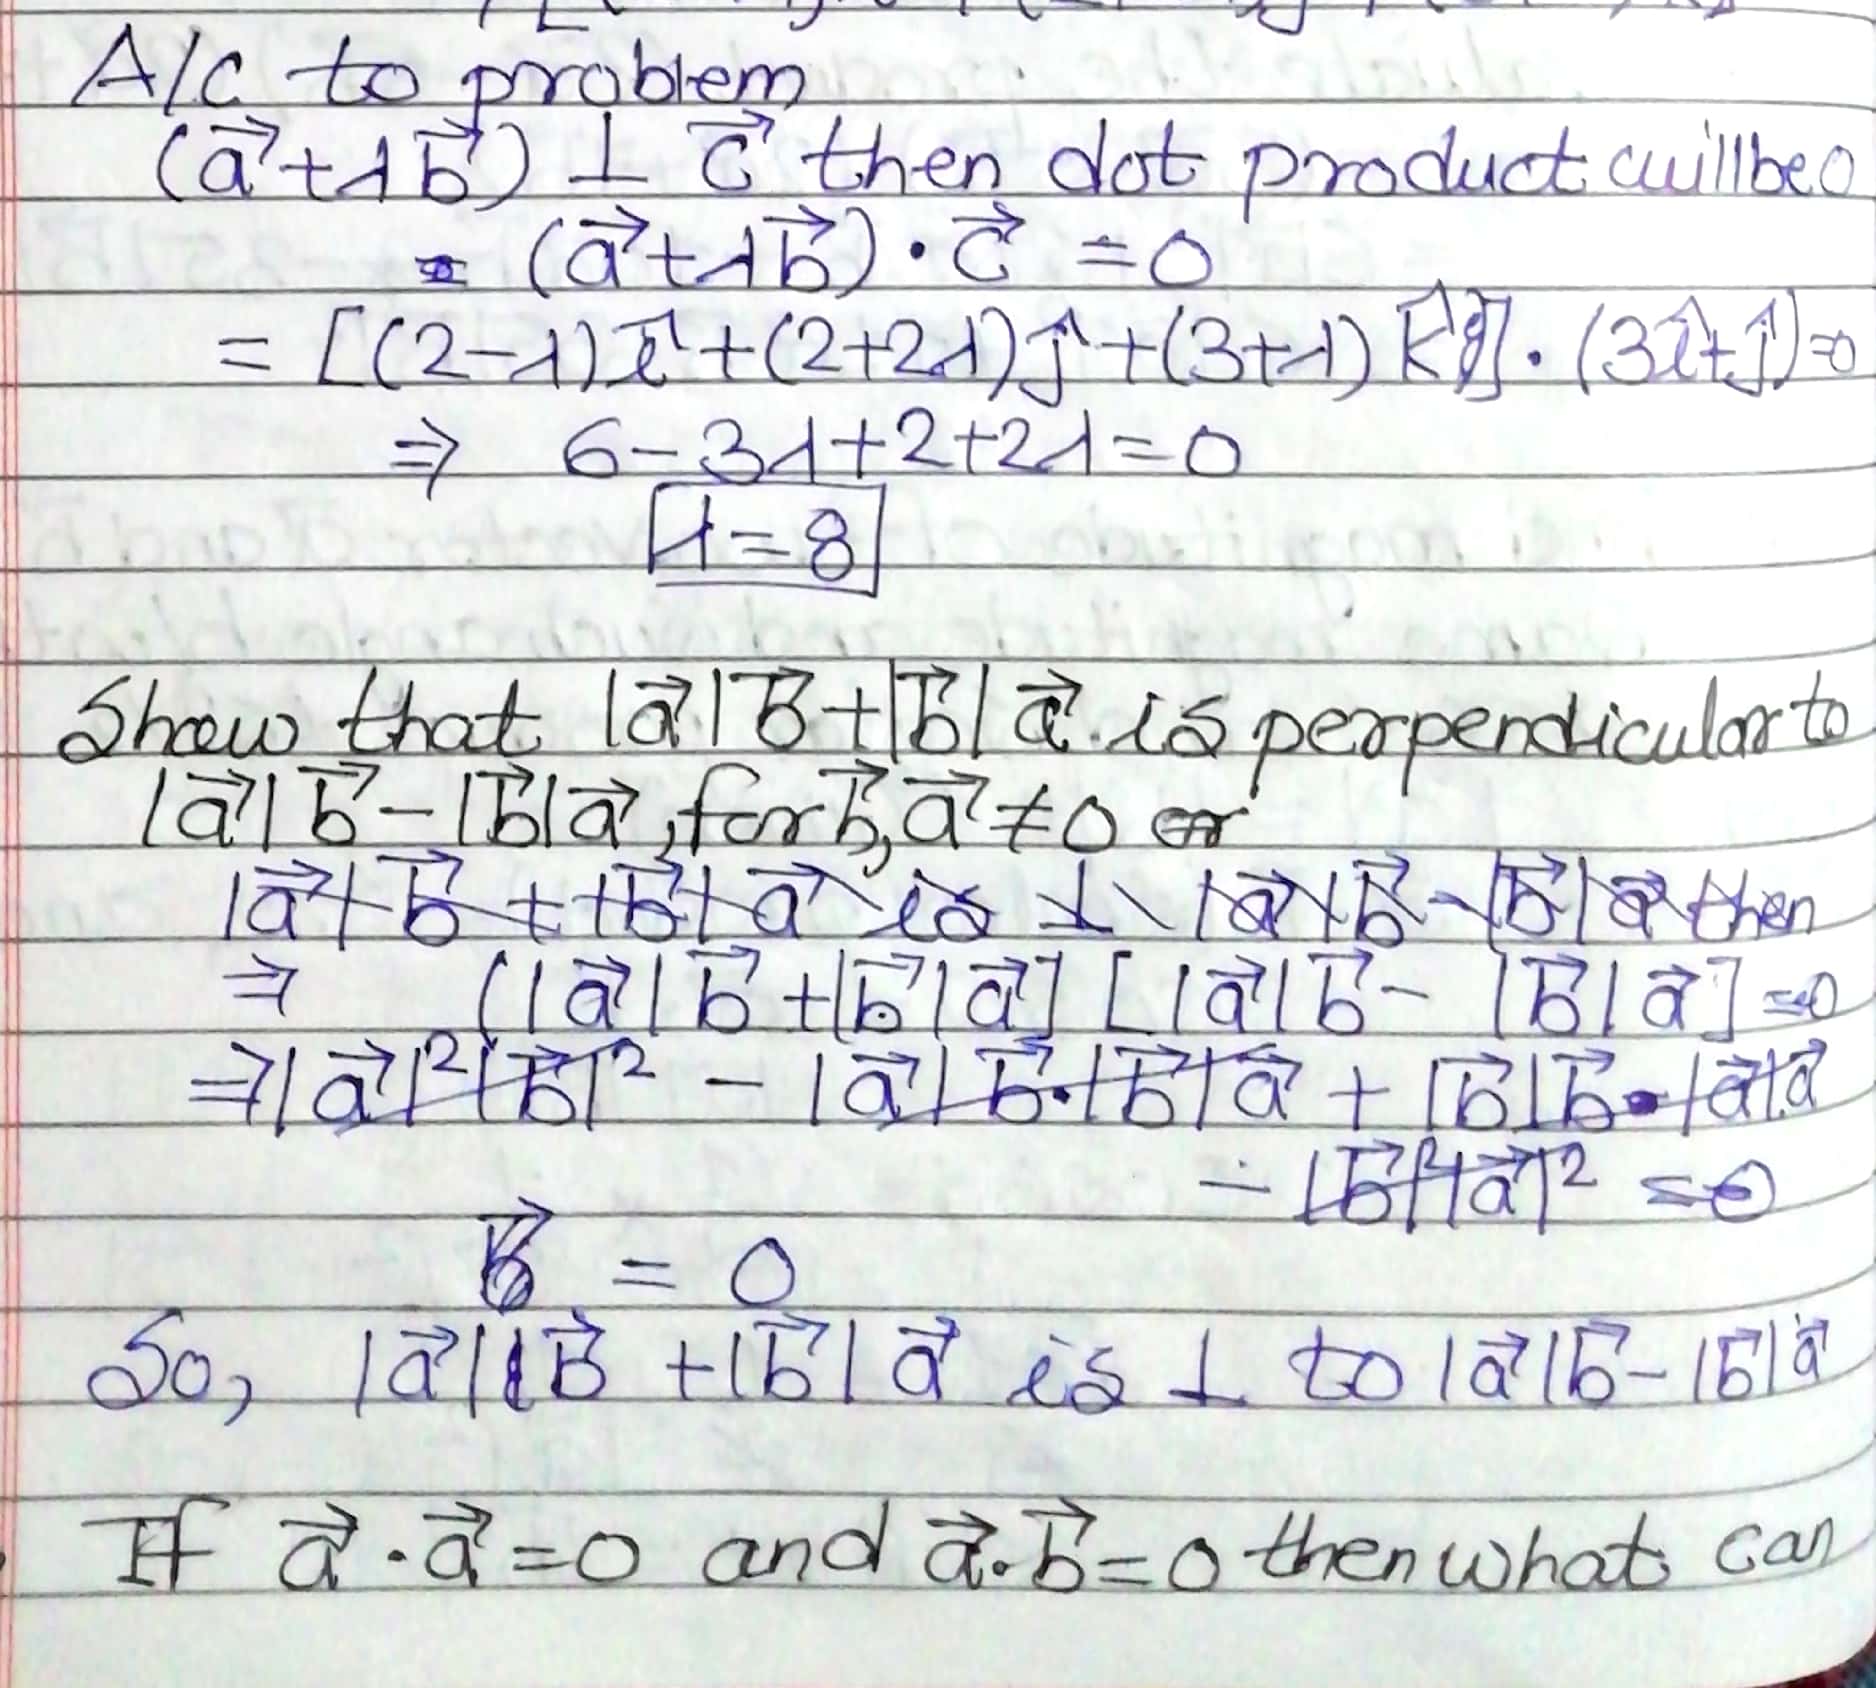 A/c to problem
(a⃗+λb⃗) ⊥ c⃗ then dot product will be 0
= (a⃗+λb⃗)·c⃗ = 0
= [(2-λ)î+(2+2λ)ĵ+(3+λ)k̂]·(3î+ĵ)=0
⇒ 6-3λ+2+2λ=0
λ=8
Show that |a⃗|b⃗+|b⃗|a⃗ is perpendicular to
|a⃗|b⃗-|b⃗|a⃗, for b⃗,a⃗≠0 or
|a⃗|b⃗+|b⃗|a⃗ is ⊥ |a⃗|b⃗-|b⃗|a⃗ then
⇒ (|a⃗|b⃗+|b⃗|a⃗] [|a⃗|b⃗-|b⃗|a⃗]=0
⇒|a⃗|²|b⃗|² - |a⃗|b⃗·|b⃗|a⃗ + |b⃗|b⃗·|a⃗|a⃗
- |b⃗|²|a⃗|² =0
= 0
So, |a⃗|b⃗+|b⃗|a⃗ is ⊥ to |a⃗|b⃗-|b⃗|a⃗
If a⃗·a⃗=0 and a⃗·b⃗=0 then what can